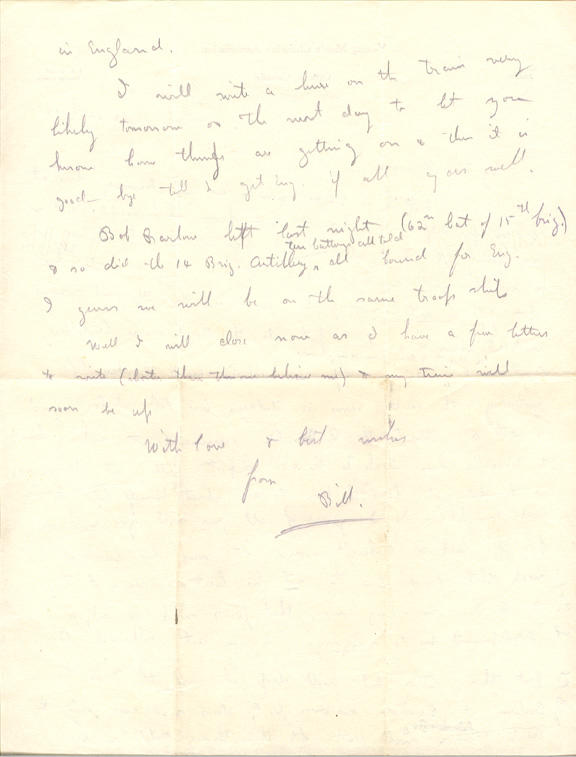 in England.
I will write a line on the train very
likely tomorrow or the next day to let you
know how things are getting on & then it is
good-bye till I get Eng if all goes well.
Bob Barlow left last night (62nd bat of 15th brig.)
ten batterys all told
& so did the 14 Brig. Artillery, all bound for Eng.
I guess we will be on the same troop ship
Well I will close now as I have a few letters
to write & my time will
soon be up
With love & best wishes
from
Bill.